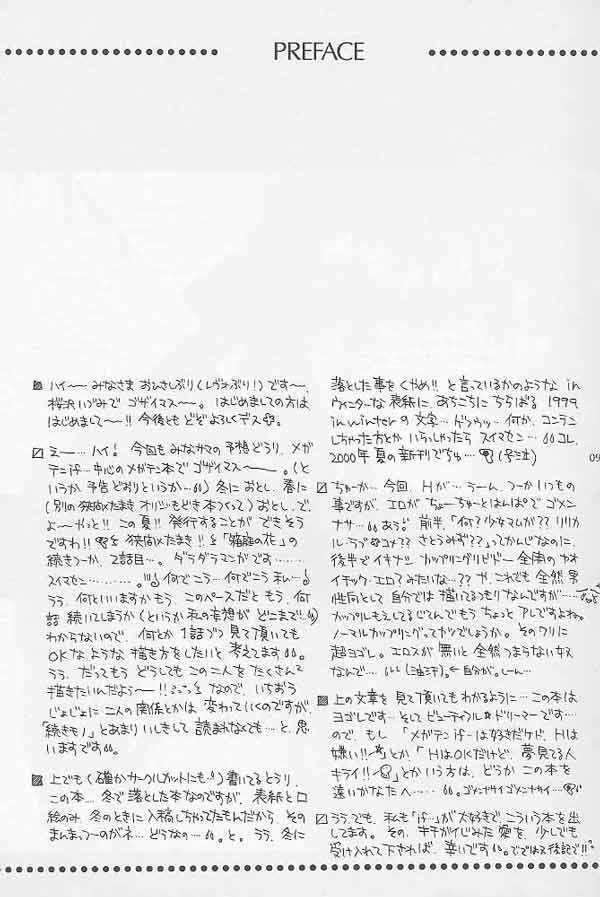 PREFACE
ハイ〜ー みなさま おひさしぶり(レヴォぶり!)です〜。
桜沢いづみで ゴザイマス〜ー。はじめましての方は、
はじめまして〜ー!! 今後とも どぞよろしくデス。
えー…ハイ! 今回も みなサマの 予想どうり、メガ
テンif…中心の メガテン本で ゴザイマス〜ー。(と
いうか 予告どおりというか…)冬におとし、春に
おとし、で、
よ〜やっと!! この夏!! 発行することが できそう
ですわ!! を 狭間×たまき!! を「箱庭の花」の
続きつーか、2話目…。ダラダラマンガです……
スイマセン………。何でこう…何でこう 私ー!
うう、何といいますか もう、このペースだと もう、何
話 続いてしまうか(というか 私の妄想が どこまで…)
わからないので、何とか 1話ずつ 見て頂いても
OKな ような 描き方をしたいと 考えてます。
うう、だってもう どうしても この二人を たくさん
描きたいんだよう〜ー!! なので、いちおう
じょじょに 二人の関係とかは 変わっていくのですが、
「続きも!」とあまり いしきして 読まれなくても…と、思
います です。
上でも(確か サークルカットにも!)書いてるとうり、
この本… 冬で落とした本なのですが、表紙と口
絵のみ 冬のときに入稿しちゃってたもんだから、その
まんまつーのがネ… どうなの…。と。うう、冬に
落とした事を くやめ!! と 言っているかのような in
ウィンターな 表紙に、あちこちに ちらばる 1999
in winterの 文字… 何か、コンラン
しちゃった方とか いらっしゃったら スイマセン… コレ、
2000年 夏の新刊でちゅ…(号泣)
09
ちゅーか… 今回、Hが… うーん、つーか いつもの
事ですが、エロが ちょーちゅーとはんぱで ゴメン
ナサ… あう。前半、「何?少女マンガ?? リリカ
ル・ラブコメ?? さとうみず??」ってかんじなのに、
後半で イキナシ カップリングリビドー 全開の
エロ?みたいな…?? や、これでも 全然 男
性向として 自分では 描いてるつもりなんですが…
カップルもえしてるじてんで もうちょっと アレですよね。
ノーマルカップリングってヤツでしょうか。そのワリに
超ヨゴレ。エロスが 無いと 全然 つまらない 女
なんで…(油汗)。←自分が。しーん…
上の文章を 見て頂いてもわかるように… この本は
ヨゴレです… そして ビューティフル ドリーマーです…
ので、もし 「メガテンif…は好きだケド、Hは
嫌い!!」とか「HはOKだけど、夢見てる人
キライ!!」とかいう方は、どうか この本を
遠いかなたへ……。ゴメンナサイゴメンナサイ…
うう、でも、私も「if…」が 大好きで、こういう本を 出
してます。その、キチガイじみた 愛を、少しでも
受け入れて下されば、幸いです。でではぁ 後記で!!